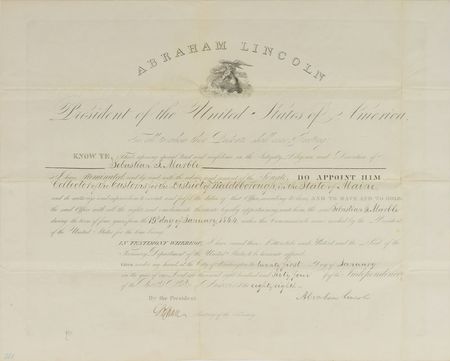 ABRAHAM LINCOLN
President of the United States of America,
To all to whom these Presents shall come, Greeting:
KNOW YE, That reposing special trust and confidence in the Integrity, Diligence and Discretion of
Sebastian S. Marble
I have Nominated and by and with the advice and consent of the Senate, DO APPOINT HIM
Collector of the Customs for the District of Waldoborough, in the State of Maine,
and do authorize and empower him to execute and fulfil the duties of that Office according to Law; AND TO HAVE AND TO HOLD
the said Office with all the rights and emoluments thereunto legally appertaining unto him the said Sebastian S. Marble
during the term of four years from the 19th day of January 1864, unless this Commission be sooner revoked by the President
of the United States for the time being.
IN TESTIMONY WHEREOF, I have caused these Letters to be made Patent and the Seal of the
Treasury Department of the United States to be hereunto affixed.
Given under my hand, at the City of Washington the twenty first Day of January
in the year of our Lord one thousand eight hundred and sixty four and of the Independence
of the United States of America the eighty eighth.
By the President
Abraham Lincoln
Secretary of the Treasury.